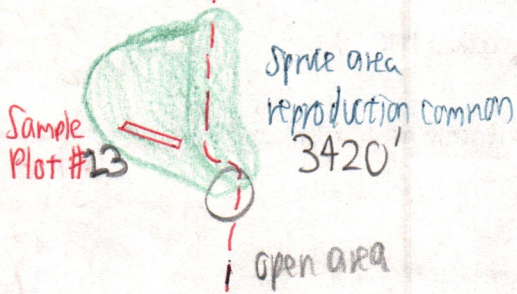 Spruce area
reproduction common
3420'
Sample
Plot #23
open area